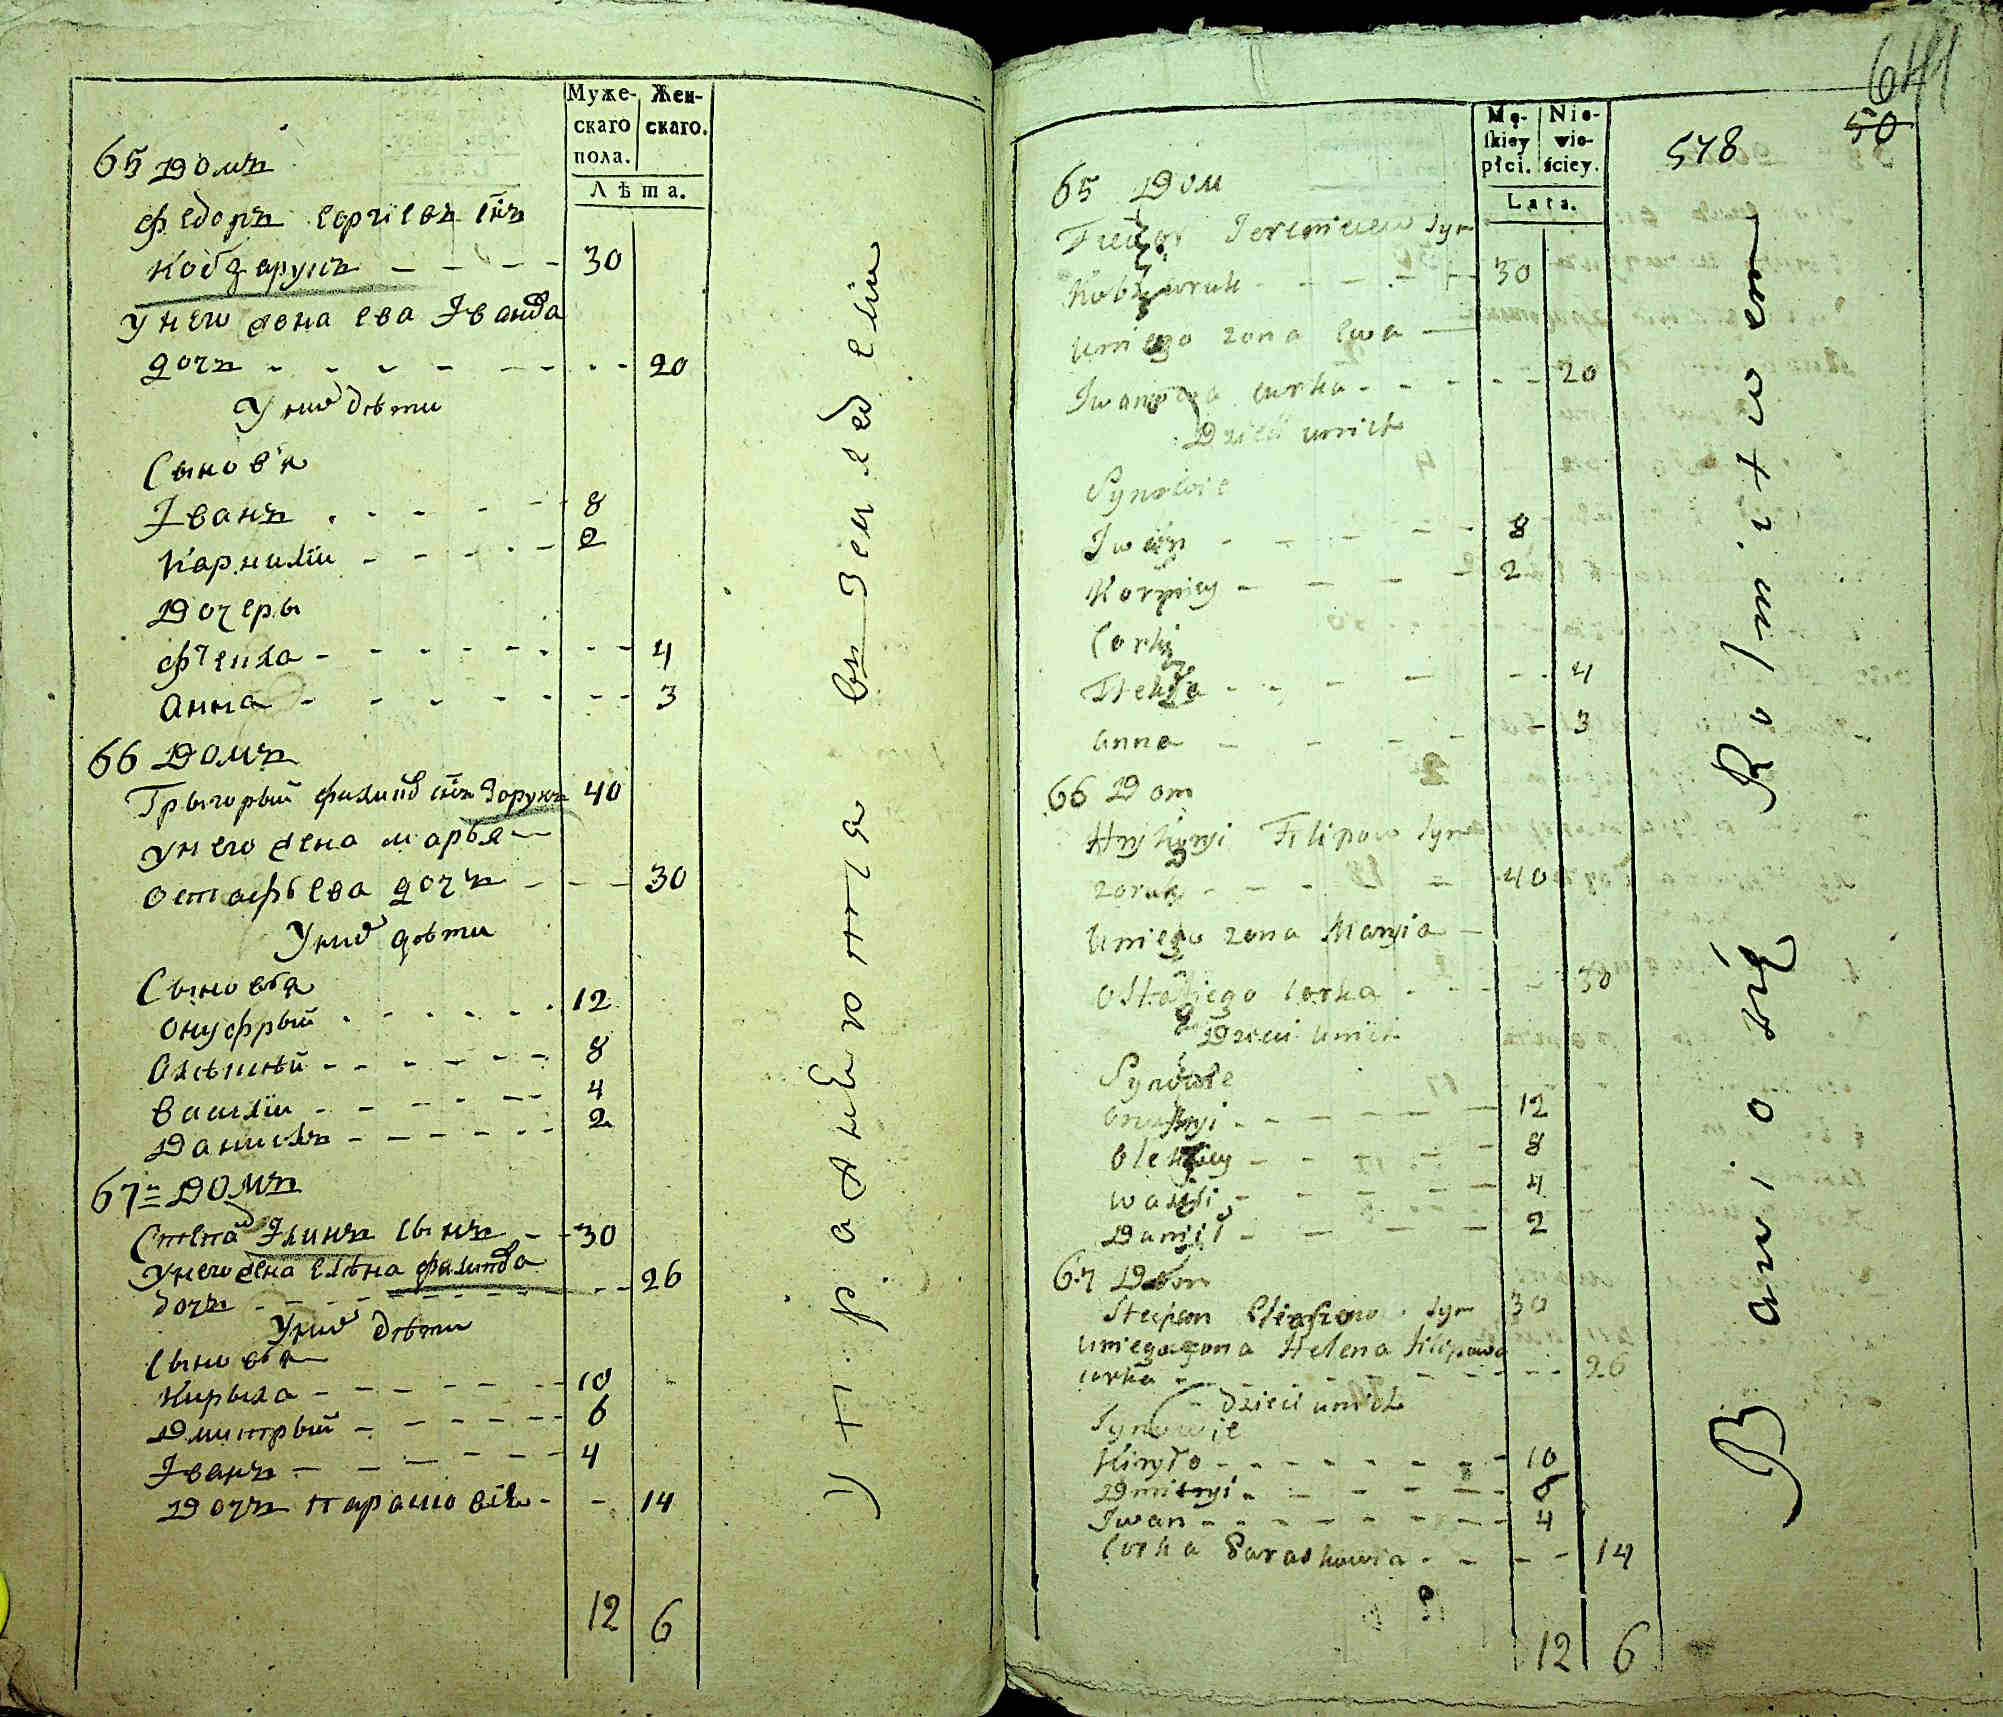 Муже-
скаго
пола.
Жен-
скаго.
Лѣта.
65 Домъ
Федоръ Ергіевъ сн҃ъ
Кобзарукъ - - - - 30
У него жена Ева Іванова
дочъ - - - - - - - 20
У них дѣти
Сыновъя
Іванъ - - - - - 8
Карнилїи - - - - - 2
Дочеры
Фтекла - - - - - - - 4
Анна - - - - - - - 3
66 Домъ
Грыгорый Филипов сн҃ъ Зорукъ 40
У него жена Марья
Остафьева дочъ - - - 30
У них дѣти
Сыновья
Онуфрый - - - - - 12
Олѣксѣй - - - - - 8
Василїи - - - - - 4
Данилъ - - - - - 2
67 Домъ
Степа Илинъ сынъ - - 30
У него жена Елѣна Филипова
дочъ - - - - - - - 26
У них дѣти
Сыновья
Кирыла - - - - - - 10
Дмитрый - - - - - 6
Іванъ - - - - - - 4
Дочъ Парасковія - - 14
12 6
Упражняются въ земледелїи
641
50
578
Mę-
skiey
płci.
Nie-
wie-
ściey.
Lata.
65 Dom
Fiedor Jeremiiew syn
Kobzaruk - - - - - 30
U niego zona Ewa
Iwanowa curka - - - - - 20
Dzieci u nich
Synowie
Iwan - - - - - 8
Korniey - - - - - 2
Corki
Ftekla - - - - - - 4
Anna - - - - - - 3
66 Dom
Hryhoryi Filipow syn
Zoruk - - - - - 40
U niego zona Maryia
Ostafiego corka - - - - 30
Dzieci u nich
Synowie
Onufryi - - - - - - 12
Oleksiey - - - - - 8
Wasili - - - - - 4
Daniił - - - - 2
67 Dom
Stepan syn 30
U niego zona Helena Filipowa
corka - - - - - - - - 26
Dzieci u nich
Synowie
Kiryło - - - - - - - - 10
Dmitryi - - - - - - 6
Iwan - - - - - - - - 4
Corka Paraskowia - - - - 14
12 6
Bawio się Rolnitwem